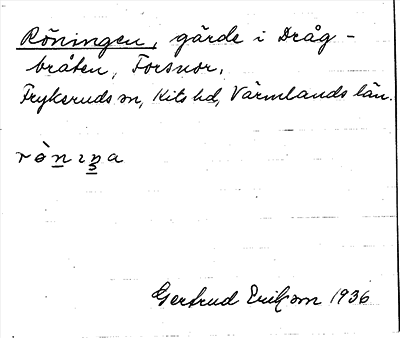 Röningen, gärde i Dråg-
bråten, Forsnor,
Frykeruds sn, Kils hd, Värmlands län.
rò̀nına
Gertrud Erikson 1936